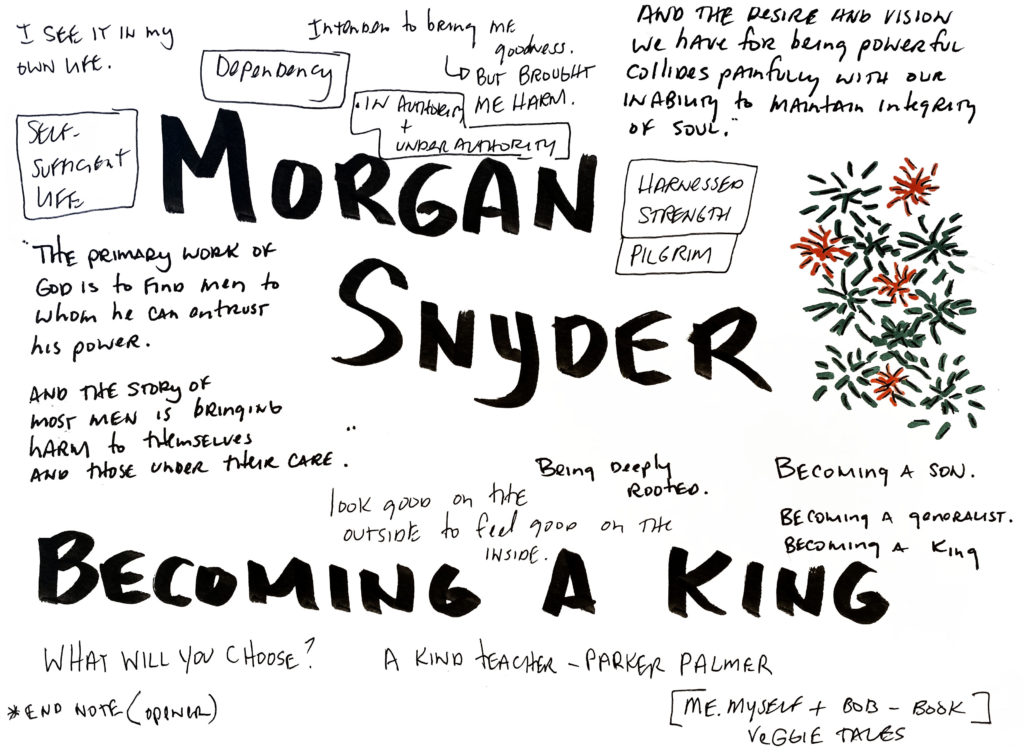 I SEE IT IN my
OWN LIFE.
Dependency
Intended to bring ME
goodness.
BUT BROUGHT
ME HARM.
• IN AUTHORITY
+
UNDER AUTHORITY
AND THE DESIRE AND VISION
WE HAVE FOR being powerful
COLLIDES PAINFULLY WITH OUR
INABILITY to MAINTAIN INtegrity
OF SOUL."
SELF-
SUFFICIENT
LIFE
MORGAN
SNYDER
HARNESSED
STRENGTH
PILGRIM
"THE PRIMARY WORK OF
GOD IS to FIND MEN to
WHOM he CAN entrust
his POWER.
AND THE STORY OF
MOST MEN IS bRINGING
HARM to tHEMSELVES
AND tHOSE UNDER THEIR CARE."
Being Deeply
ROOTED.
look good on tHE
OUTSIDE to feel good on THE
INSIDE.
BECOMING A SON.
BECOMING A generalist.
BECOMING A King
BECOMING A KING
WHAT WILL YOU CHOOSE?
A KIND teACHER – PARKER PALMER
*END NOTE (opener)
[ME. MYSELF + BOB – BOOK]
VeGGIE TALES